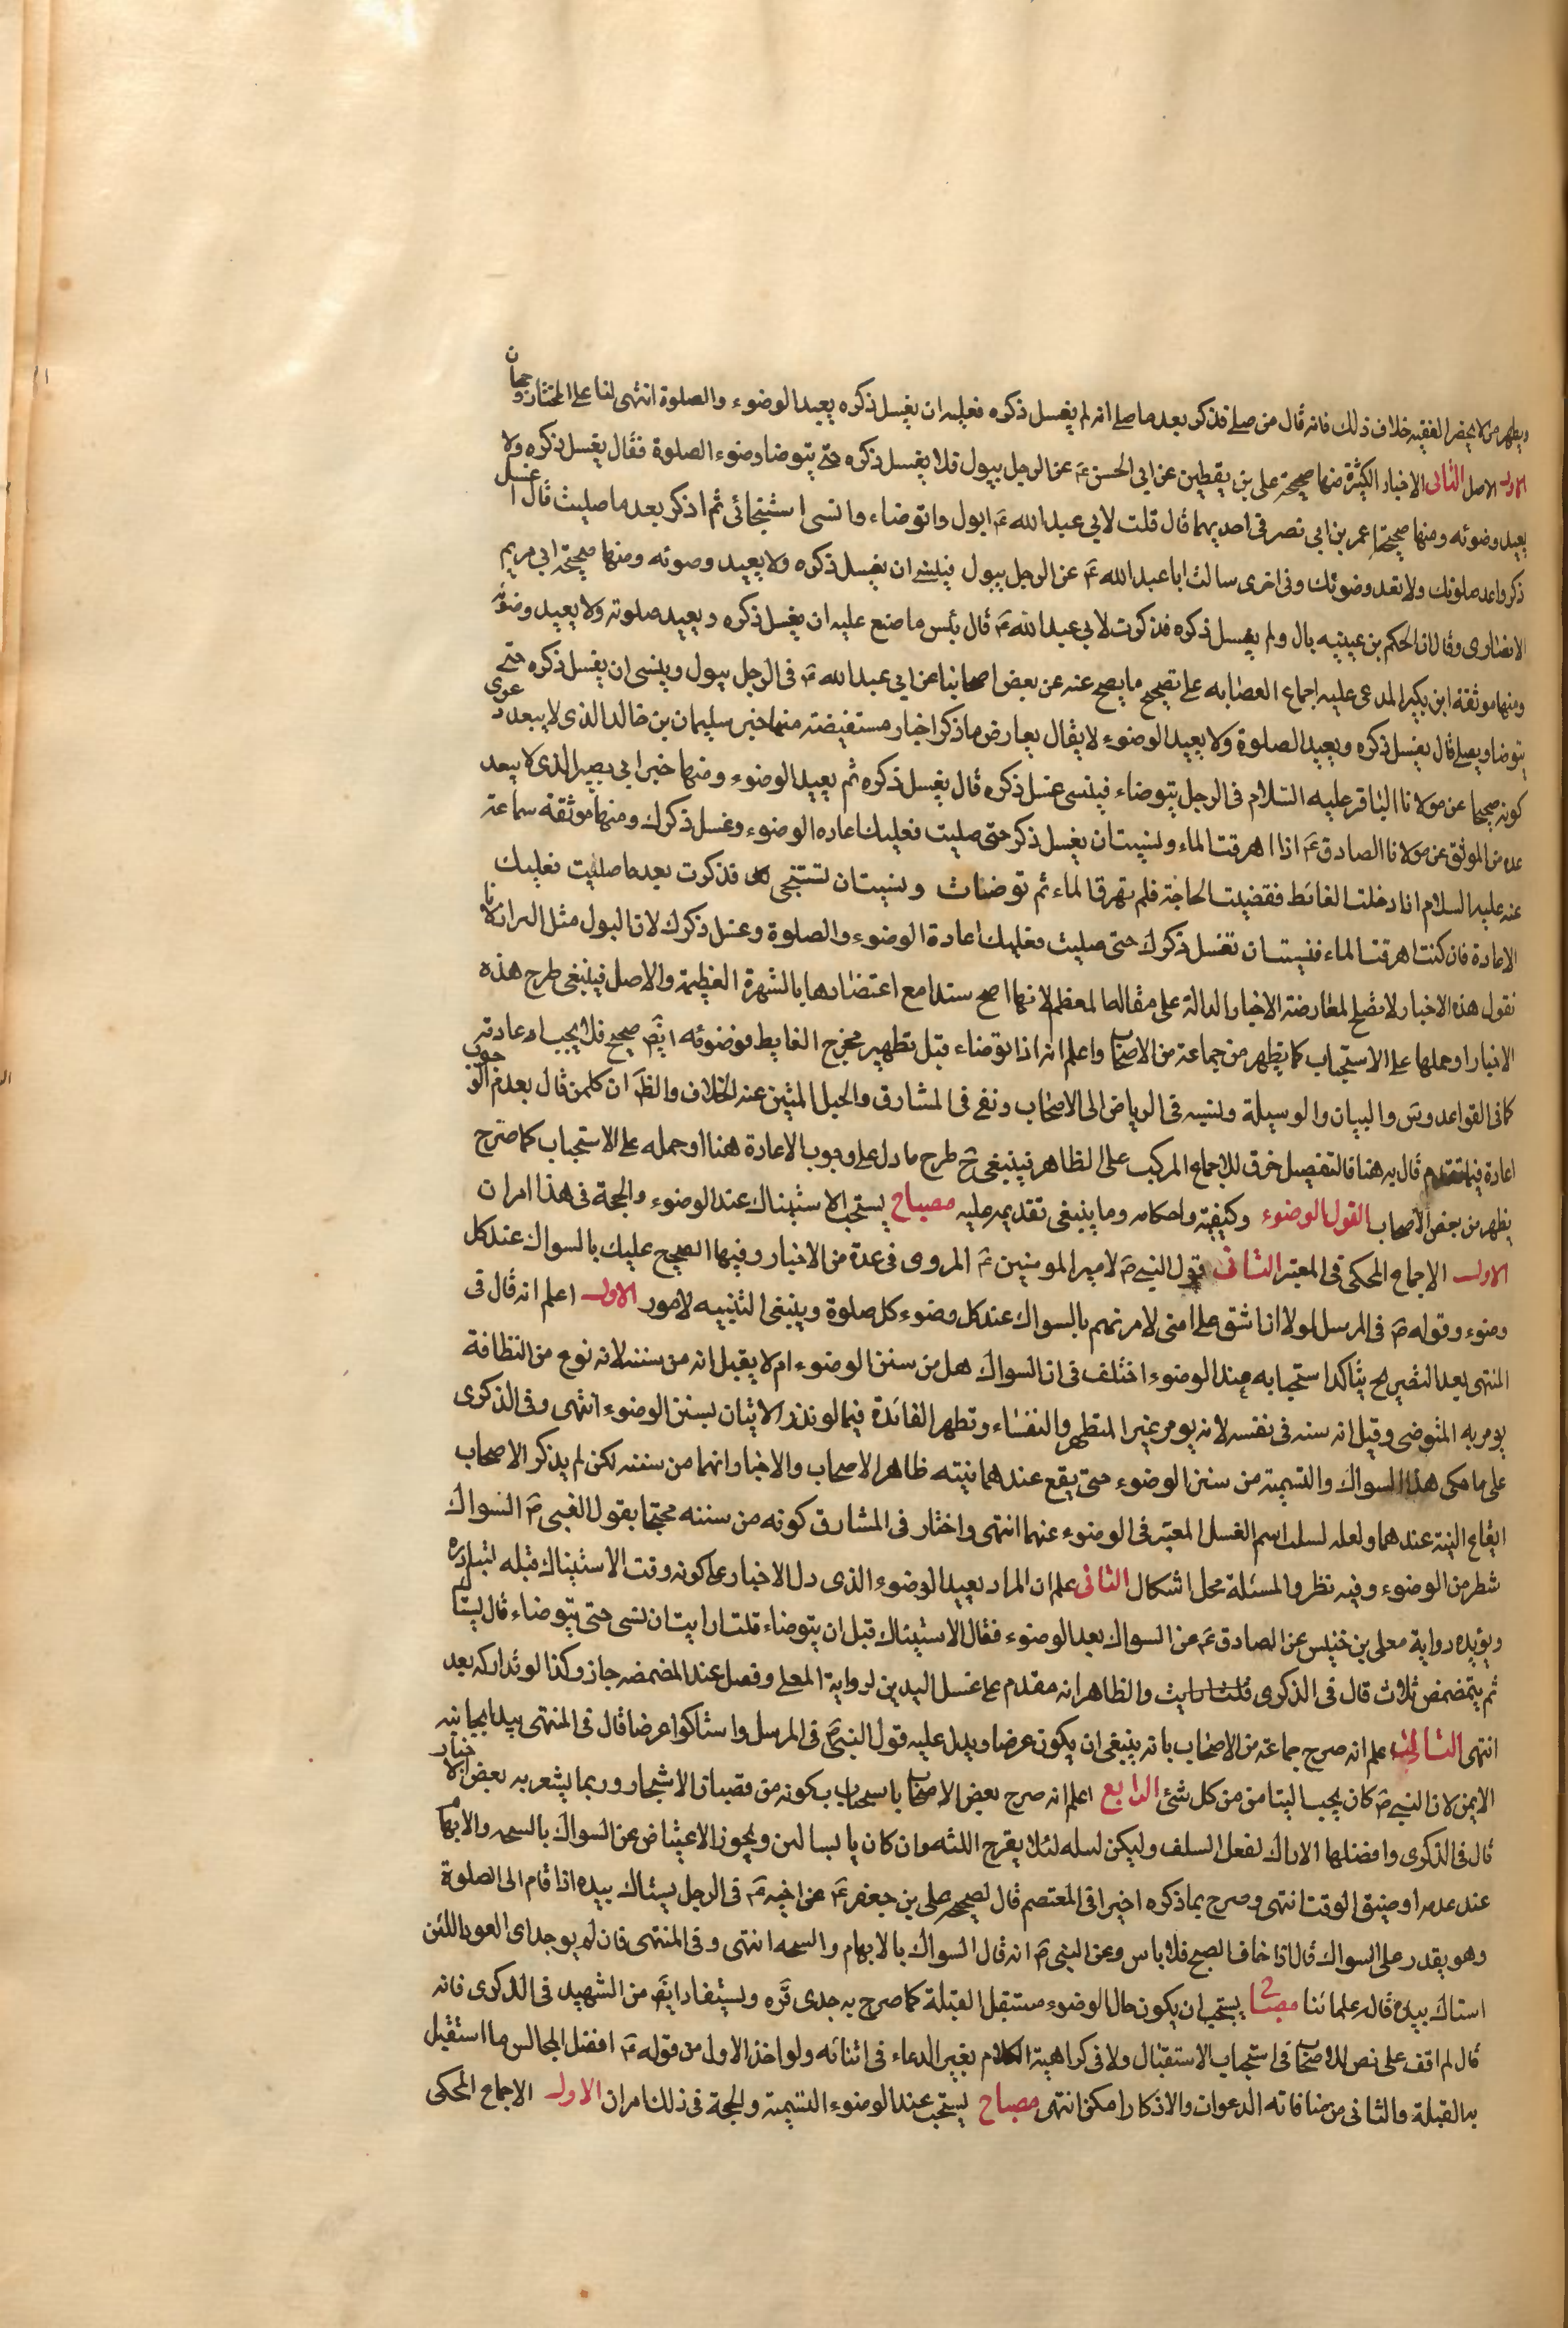 ويظهر من لا يحضر الفقيه خلاف ذلك فانه قال من صلى فذكر بعد ما صلى انه لم يغسل ذكره فعليه ان يغسل ذكره يعيد الوضوء والصلوة انتهى لنا على المختار وجهان
الاول الاصل الثانى الاخبار الكثيرة منها صحيحة على بن يقطين عن ابى الحسن ع عن الرجل يبول فلا يغسل ذكره حتى يتوضا وضوء الصلوة فقال يغسل ذكره ولا
يعيد وضوئه ومنها صحيحة عمر بن ابى نصر فى احديهما قال قلت لابى عبد الله ع ابول واتوضاء وانسى استنجائى ثم اذكر بعد ما صليت قال اغسل
ذكر واعد صلوتك ولا تعد وضوئك وفى اخرى سالت ابا عبد الله ع عن الرجل يبول فينسى ان يغسل ذكره ولا يعيد وضوئه ومنها صحيحة ابى مريم
الانصارى وقال ان الحكم بن عيينه بال ولم يغسل ذكره فذكرت لابى عبد الله ع قال بئس ما صنع عليه ان يغسل ذكره ويعيد صلوته ولا يعيد وضوئه
ومنها موثقة ابن بكير المدعى عليه اجماع العصابه على تصحيح ما يصح عنه عن بعض اصحابنا عن ابى عبد الله ع فى الرجل يبول وينسى ان يغسل ذكره حتى
يتوضا ويصلى قال يغسل ذكره ويعيد الصلوة ولا يعيد الوضوء لا يقال يعارض ما ذكر اخبار مستفيضته منها خبر سليمان بن خالد الذى لا يبعد دعوى
كونه صحيحا عن مولانا الباقر عليه السلام فى الرجل يتوضاء فينسى غسل ذكره قال يغسل ذكره ثم يعيد الوضوء ومنها خبر ابى بصير الذى لا يبعد
عده من الموثق عن مولانا الصادق ع اذا اهرقت الماء ونسيت ان يغسل ذكر حتى صليت فعليك اعاده الوضوء وغسل ذكرك ومنها موثقه سماعة
عنه عليه السلام اذا دخلت الغائط فقضيت الحاجة فلم تهرق الماء ثم توضات ونسيت ان تستنجى فذكرت بعد ما صليت فعليك
الاعادة فان كنت اهرقت الماء فنسيت ان تغسل ذكرك حتى صليت فعليك اعادة الوضوء والصلوة وغسل ذكرك لان البول مثل البراز لانا
نقول هذه الاخبار لا تصلح لمعارضة الاخبار الدالة على مقاله المعظم لانها اصح سندا مع اعتضادها بالشهرة العظيمة والاصل فينبغى طرح هذه
الاخبار او حملها على الاستحباب كما يظهر من جماعة من الاصحاب واعلم انه اذا توضاء قبل تطهير مخرج الغايط فوضوئه ايضا صحيح فلا يجب اعادته
كما فى القواعد وس والبيان والوسيلة ونسبه فى الرياض الى الاصحاب ونفى فى المشارق والحبل المتين عنه الخلاف والظ ان كلمن قال بعدم الوجوب
اعادة فيما تقدم قال به هنا فالتفصيل خرق للاجماع المركب على الظاهر فينبغى ح طرح ما دل على وجوب الاعادة هنا او حمله على الاستحباب كما صرح
يظهر من بعض الاصحاب القول الوضوء وكيفيته واحكامه وما ينبغى تقديمه عليه مصباح يستحب الاستياك عند الوضوء والحجة فى هذا امران
الاول الاجماع المحكى فى المعتبر الثانى قول النبى ص لامير المومنين ع المروى فى عدة من الاخبار وفيها الصحيح عليك بالسواك عند كل
وضوء وقوله ص فى المرسل لولا ان اشق على امتى لامرتهم بالسواك عند كل وضوء كل صلوة وينبغى التنبيه لامور الاول اعلم انه قال فى
المنتهى بعد التصريح بتاكد استحبابه عند الوضوء اختلف فى ان السواك هل من سنن الوضوء ام لا يقبل انه من سننه لانه نوع من النظافة
يومر به المتوضى وقيل انه سنه فى نفسه لانه يومر غير المتطهر والنفساء وتظهر الفائدة فيما لو نذر الاتيان بسنن الوضوء انتهى وفى الذكرى
على ما حكى هذا السواك والتسمية من سنن الوضوء حتى يقع عندهما نيته ظاهر الاصحاب والاخبار انهما من سننه لكن لم يذكر الاصحاب
ايقاع النية عندهما ولعله لسلب اسم الغسل المعتبر فى الوضوء عنهما انتهى واختار فى المشارق كونه من سننه محتجا بقول النبى ص السواك
شطر من الوضوء وفيه نظر والمسئلة محل اشكال الثانى علم ان المراد بعيد الوضوء الذى دل الاخبار على كونه وقت الاستياك قبله لتبادره
ويؤيده رواية معلى بن خنيس عن الصادق ع عن السواك بعد الوضوء فقال الاستياك قبل ان يتوضاء قلت ارايت ان نسى حتى يتوضاء قال يستاك
ثم يتمضمض ثلاث قال فى الذكرى والظاهر انه مقدم على غسل اليدين لرواية المعلى وفصل عند المضمضه جاز وكذا لو تداركه بعد
انتهى الثالث اعلم انه صرح جماعة من الاصحاب بانه ينبغى ان يكون عرضا ويدل عليه قول النبى ص فى المرسل واستاكوا عرضا قال فى المنتهى يبدا بجانبه
الايمن لان النبى ص كان يحب التيامن من كل شئ الرابع اعلم انه صرح بعض الاصحاب باستحباب بكونه من قضبان الاشجار وربما يشعر به بعض الاخبار
قال فى الذكرى وافضلها الاراك لفعل السلف وليكن لينه لئلا يقرح اللثه وان كان يابسا لين ويجوز الاعتياض عن السواك بالمسحه والابهام
عند عدمه او ضيق الوقت انتهى وصرح بما ذكره اخيرا فى المعتصم قال لصحيحه على بن جعفر ع عن اخيه ع فى الرجل يستاك بيده اذا قام الى الصلوة
وهو يقدر على السواك قال اذا خاف الصبح فلا باس وعن النبى ص انه قال السواك بالابهام والمسحه انتهى وفى المنتهى فان لم يوجد اى العود اللين
استاك بيده قاله علمائنا مصباح يستحب ان يكون حال الوضوء مستقبل القبلة كما صرح به جدى قره ويستفاد ايضا من الشهيد فى الذكرى فانه
قال لم اقف على نص للاصحاب فى استحباب الاستقبال ولا فى كراهية الكلام بغير الدعاء فى اثنائه ولو اخذ الاول من قوله ع افضل المجالس ما استقبل
به القبلة والثانى من منافاته الدعوات والاذكار امكن انتهى مصباح يستحب عند الوضوء التسمية والحجة فى ذلك امران الاول الاجماع المحكى